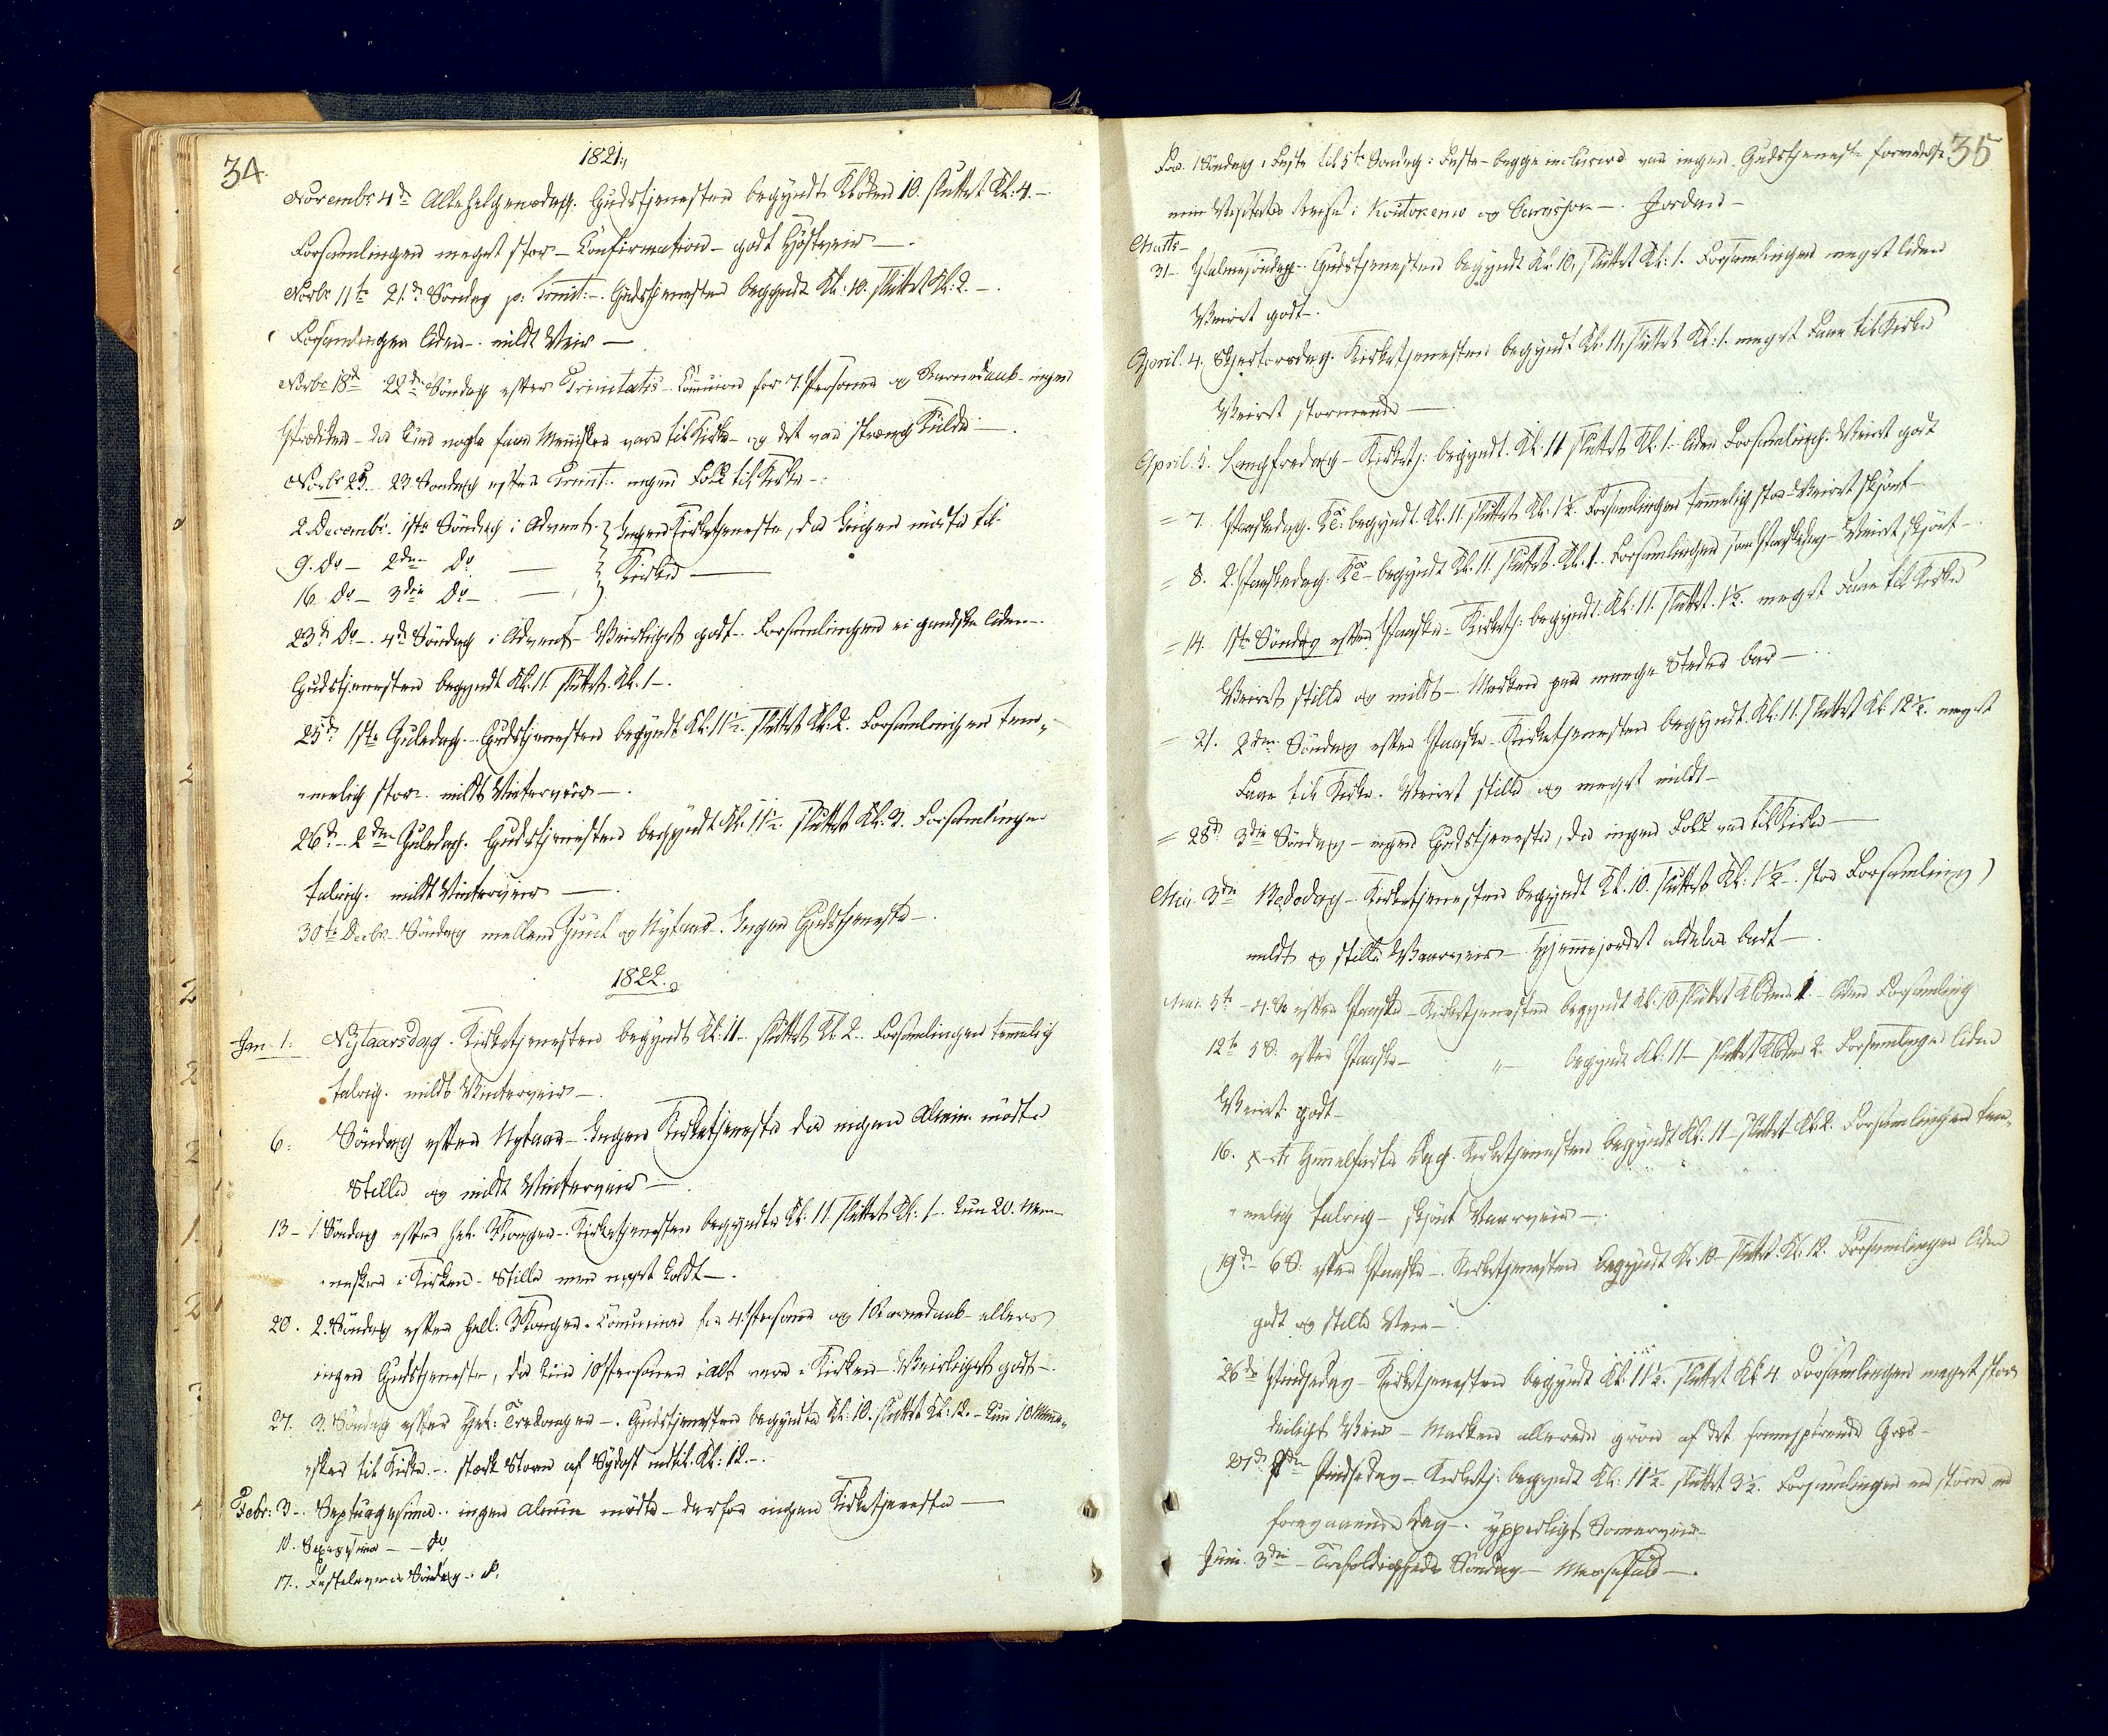 34.
1821.,
Novembr 4de Allehelgensdag. Gudstjenesten begyndt Klokken 10. sluttet Kl: 4.-
Forsamlingen meget stor - Confirmation - godt Høstveir -.
Novbr 11te 21de Søndag p: Trinit: -. Gudstjenesten begyndt Kl: 10. sluttet Kl: 2. -.
Forsamlingen liden -. mildt Veir -
Novbr 18de 22de Søndag efter Trinitatis - Communion for 7. Personer og Barnedaab - ingen
Prædiken - da kun nogle faae Mennesker vare til Kirke - og det var stræng Kulde -.
Novbr 25. 23 Søndag efter Trinit: ingen Folk til Kirke -.
2. Decembr. 1ste Søndag i Advent. } Ingen Kirketjeneste, da Ingen mødte til
9. Do - 2den Do - } Kirke -
16. Do - 3die Do - - }
23de Do -. 4de Søndag i Advent - Veirliget godt -. Forsamlingen ei gandske liden -.
Gudstjenesten begyndt Kl. 11. sluttet. Kl. 1 -.
25de 1ste Juledag. - Gudstjenesten begyndt Kl: 11½. sluttet Kl: 2. Forsamlingen tem-
-melig stor -. mildt Vinterveir -.
26de - 2den Juledag. Gudstjenesten begyndt Kl. 11½. sluttet Kl: 3. Forsamlingen
talrig. mildt Vinterveir -.
30te Decbr - Søndag mellem Juul og Nytaar -. Ingen Gudstjeneste -.
1822.
Jan. 1. Nytaarsdag. Kirketjenesten begyndt Kl: 11 - sluttet Kl. 2. Forsamlingen temmelig
talrig. mildt Vinterveir -.
6. Søndag efter Nytaar - Ingen Kirketjeneste da ingen Almue mødte
Stille og mildt Vinterveir -.
13 - 1 Søndag efter Hel. 3Konger - Kirketjenesten begyndte Kl. 11. sluttet Kl: 1 -. Kun 20. Men-
-nesker i Kirken - Stille men meget koldt -.
20. 2. Søndag efter Hell. 3Konger. Communion for 4. Personer og 1 Barnedaab - ellers
ingen Gudstjeneste, da kun 10 Personer i alt vare i Kirken - Veirliget godt -.
27. 3. Søndag efter Hel: Trekonger -. Gudstjenesten begyndte Kl: 10. sluttet Kl: 12. - Kun 10 Menne-
-sker til Kirke. -. stærk Storm af Sydost indtil Kl: 12. -.
Febr: 3 -. Septuagesima -. ingen Almue mødte - derfor ingen Kirketjeneste -
10. Sexagesima - - Do
17. Fastelavns Søndag -. d.
35
Fra 1 Søndag i Faste til 5te Søndag i Faste - begge inclusive var ingen Gudstjeneste formedelst
min Visitats Reise i Koutokeino og Carasjok -.
Marts -
31 - Palmesøndag - Gudstjenesten begyndt Kl: 10, sluttet Kl: 1. Forsamlingen meget liden
Veiret godt -.
April. 4. Skjertorsdag. Kirketjenesten begyndt Kl: 11, sluttet Kl: 1. meget Faae til Kirke
Veiret stormende -.
April. 5. Langfredag - Kirketj: begyndt. Kl: 11 sluttet Kl: 1. liden Forsamling. Veiret godt
= 7. Paaskedag. begyndt. Kl. 11. sluttet Kl: 1½. Forsamlingen temmelig stor - Veiret skjønt -
= 8. 2. Paaskedag. begyndt Kl. 11. sluttet. Kl. 1. Forsamlingen som Paaskedag - Veiret skjønt -.
= 14. 1ste Søndag efter Paaske - Kirketj: begyndt. Kl: 11. sluttet. 1½. meget Faae til Kirke
Veiret stille og mildt - Marken paa mange Steder bar -.
= 21. 2den Søndag efter Paaske - Kirketjenesten begyndt. Kl: 11. sluttet Kl. 12½. meget
Faae til Kirke. Veiret stille og meget mildt -
= 28de 3die Søndag - ingen Gudstjeneste, da ingen Folk var til Kirke -
Mai. 3die Bededag - Kirketjenesten begyndt Kl. 10. sluttet Kl: 1½ -. stor Forsamling
mildt og stille Vaarveir - Hjemmejordet aldeles bart -.
Mai. 5te - 4. S. efter Paaske - Kirketjenesten begyndt Kl: 10. sluttet Klokken 1. - liden Forsamling
12te 5 S. efter Paaske - „ - begyndt Kl: 11 - sluttet Klokken 2. Forsamlingen liden
Veiret godt -
16. Himelfarts Dag. Kirketjenesten begyndt Kl. 11 - sluttet Kl. 2. Forsamlingen tem-
-melig talrig - skjønt Vaarveir -.
19de 6 S: efter Paaske -. Kirketjenesten begyndt Kl. 10 - sluttet. Kl: 12. Forsamlingen liden
godt og stille Veir -.
26de Pindsedag - Kirketjenesten begyndt Kl. 11½. sluttet Kl. 4. Forsamlingen meget stor
deiligt Veir - Marken allerede grøn af det fremspirende Græs -
27de 2den Pindsedag - Kirketj: begyndt Kl: 11½ - sluttet 3½. Forsamlingen end større end
foregaaende Dag -. ypperligt Somerveir -
Juni. 3die - Trefoldigheds Søndag - Messefald -.